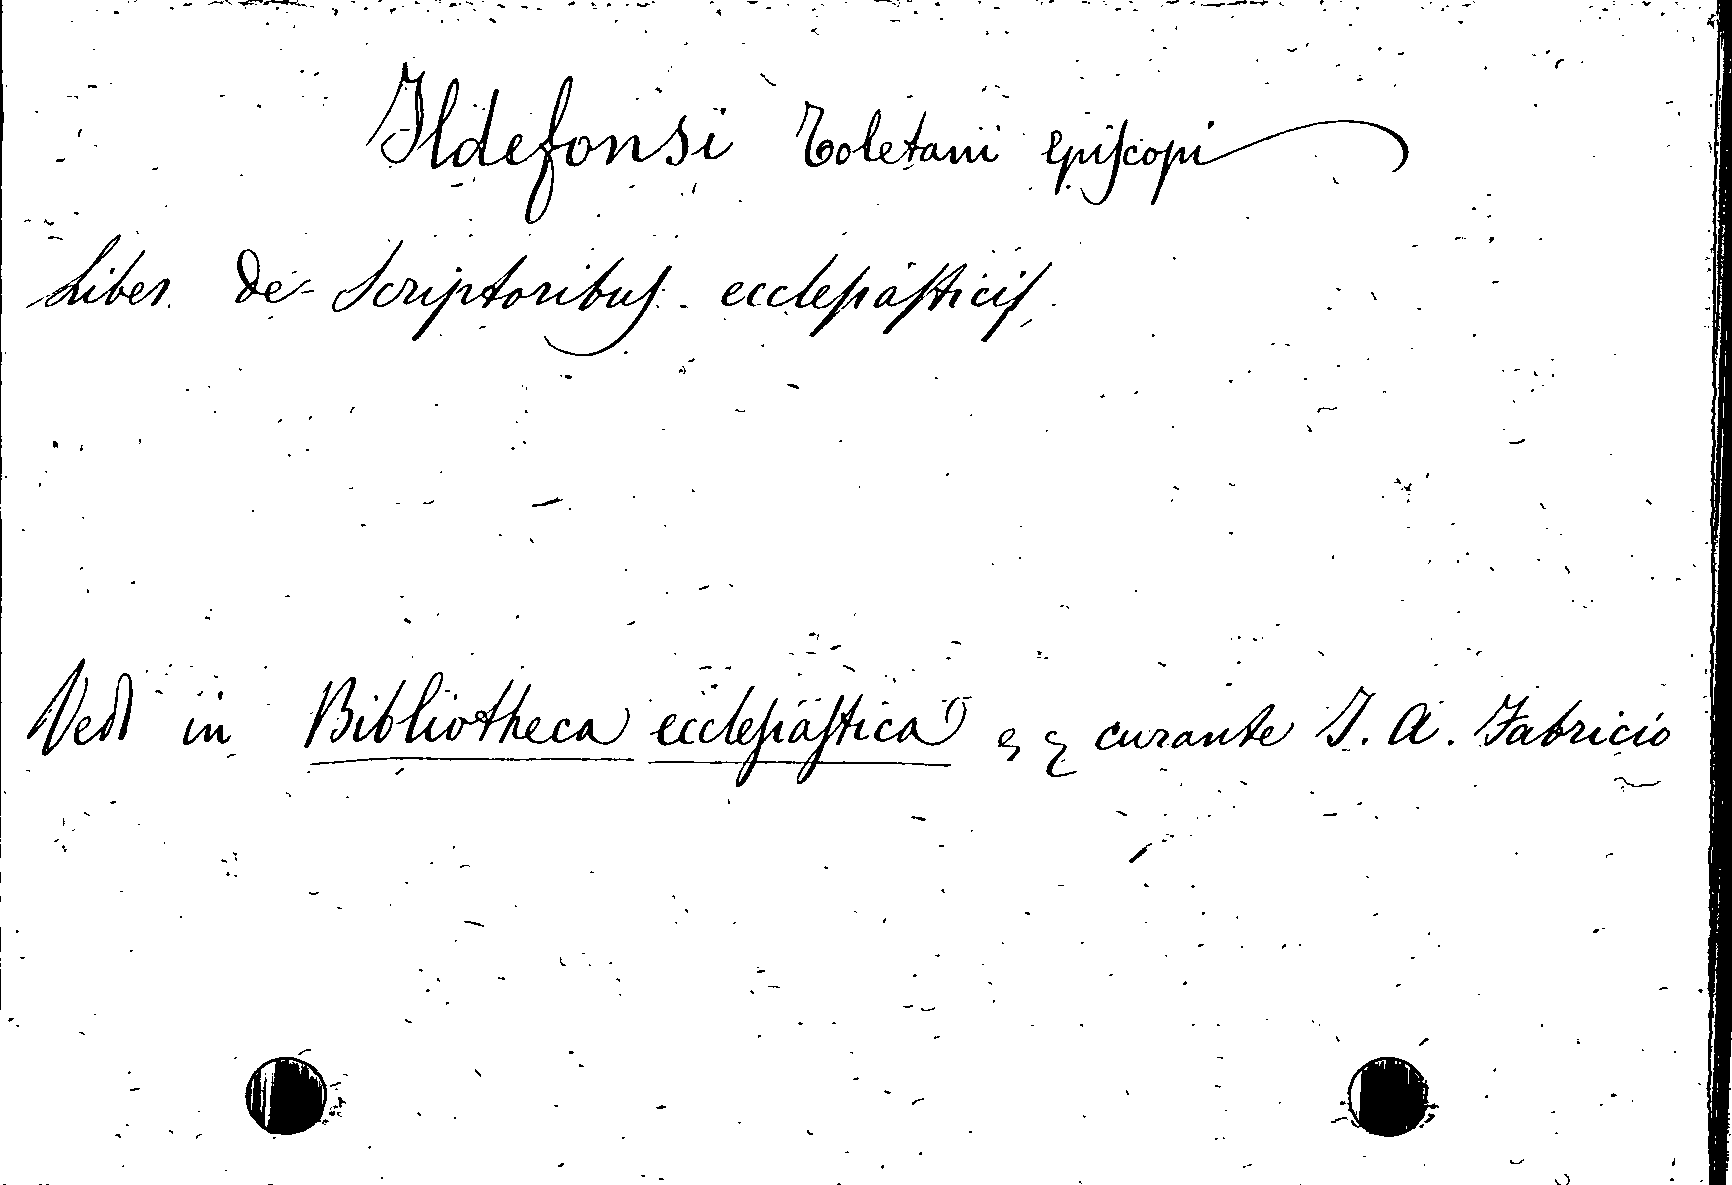 Ildefonsi Toletani Episcopi
Liber de Scriptoribus ecclesiasticis
Vedi in Bibliotheca ecclesiastica curante J. A. Fabricio